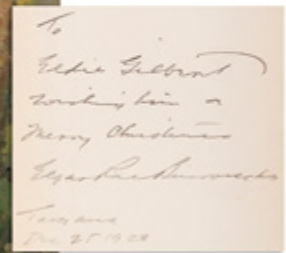 To
Eddie Gilbert
wishing him a
Merry Christmas
Edgar Rice Burroughs
Tarzana
Dec 25 19